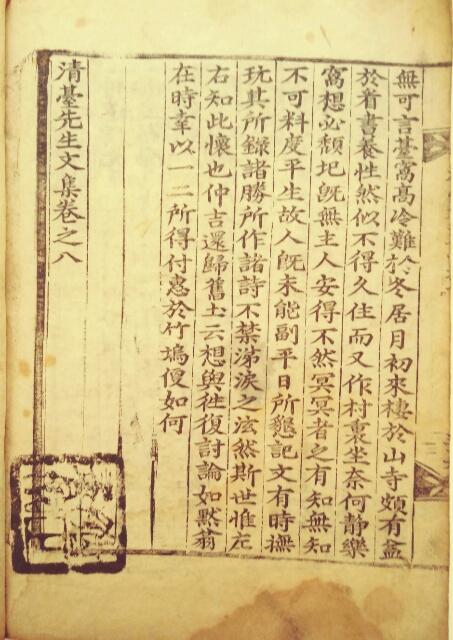 無可言甚寓高冷難於冬居月初來棲於山寺頗有益
於着書養性然似不得久住而又作村裏坐奈何靜樂
寓想必頹圯旣無主人安得不然冥冥者之有知無知
不可料度平生故人旣未能副平日所懇記文有時撫
玩其所錄諸勝所作諸詩不禁涕淚之泫然斯世惟左
右知此懷也仲吉還歸舊土云想與往復討論如默翁
在時幸以一二所得付惠於竹塢便如何
清臺先生文集卷之八